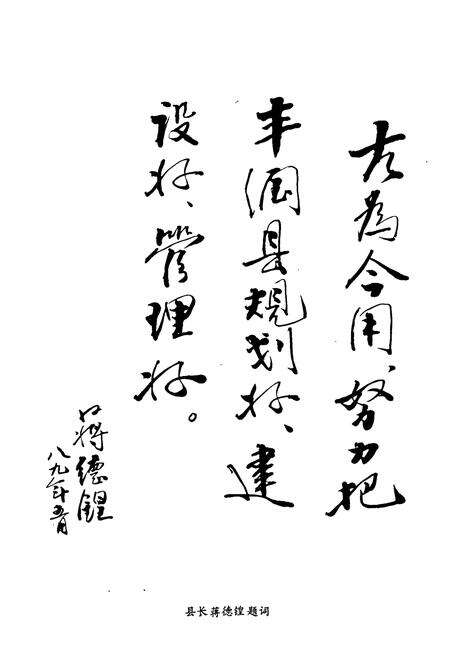 古為今用、努力把
丰润县规划好、建
设好、管理好。
蒋德锽
八九年五月
县长蒋德锽题词